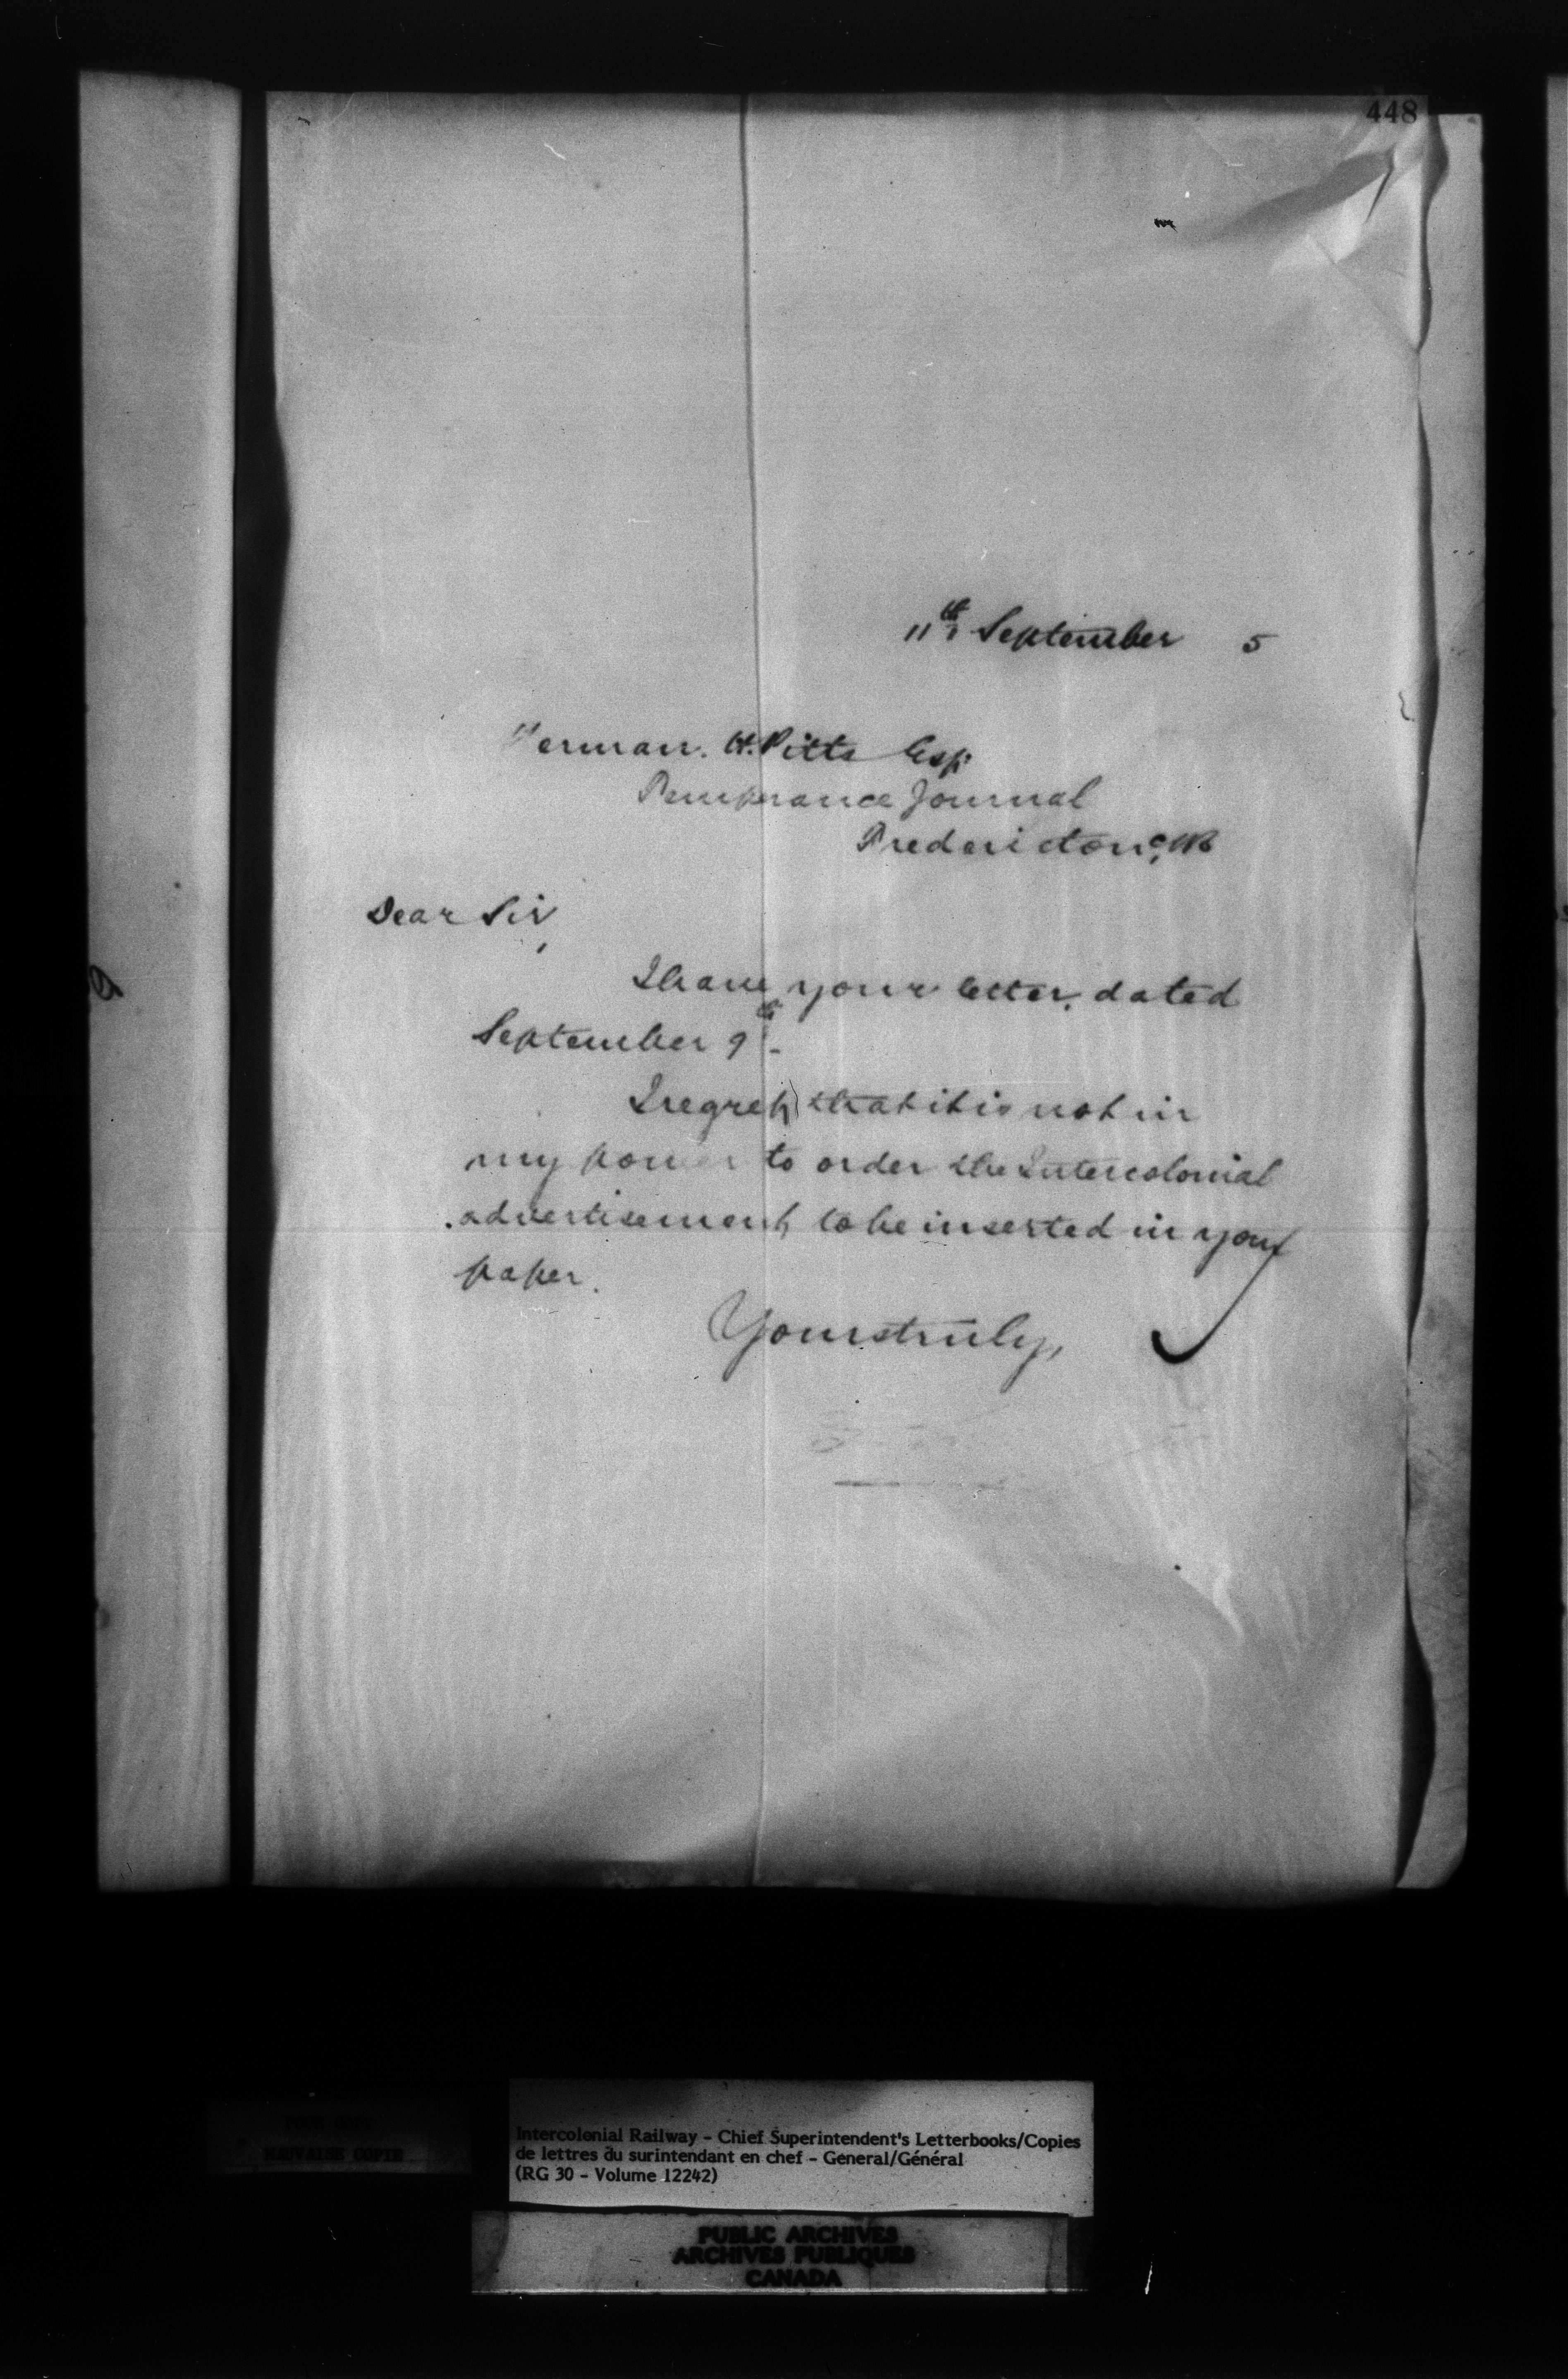 448
11th September 5
Herman. H. Pitts Esq.
Temperance Journal
Fredericton, NB
Dear Sir,
I have your letter, dated
September 9th-
I regret, that it is not in
my power to order the Intercolonial
advertisement, to be inserted in your
paper.
Yours truly,
Intercolonial Railway - Chief Superintendent's Letterbooks/Copies
de lettres du surintendant en chef - General/Général
(RG 30 - Volume 12242)
MAUVAISE COPIE
PUBLIC ARCHIVES
ARCHIVES PUBLIQUES
CANADA